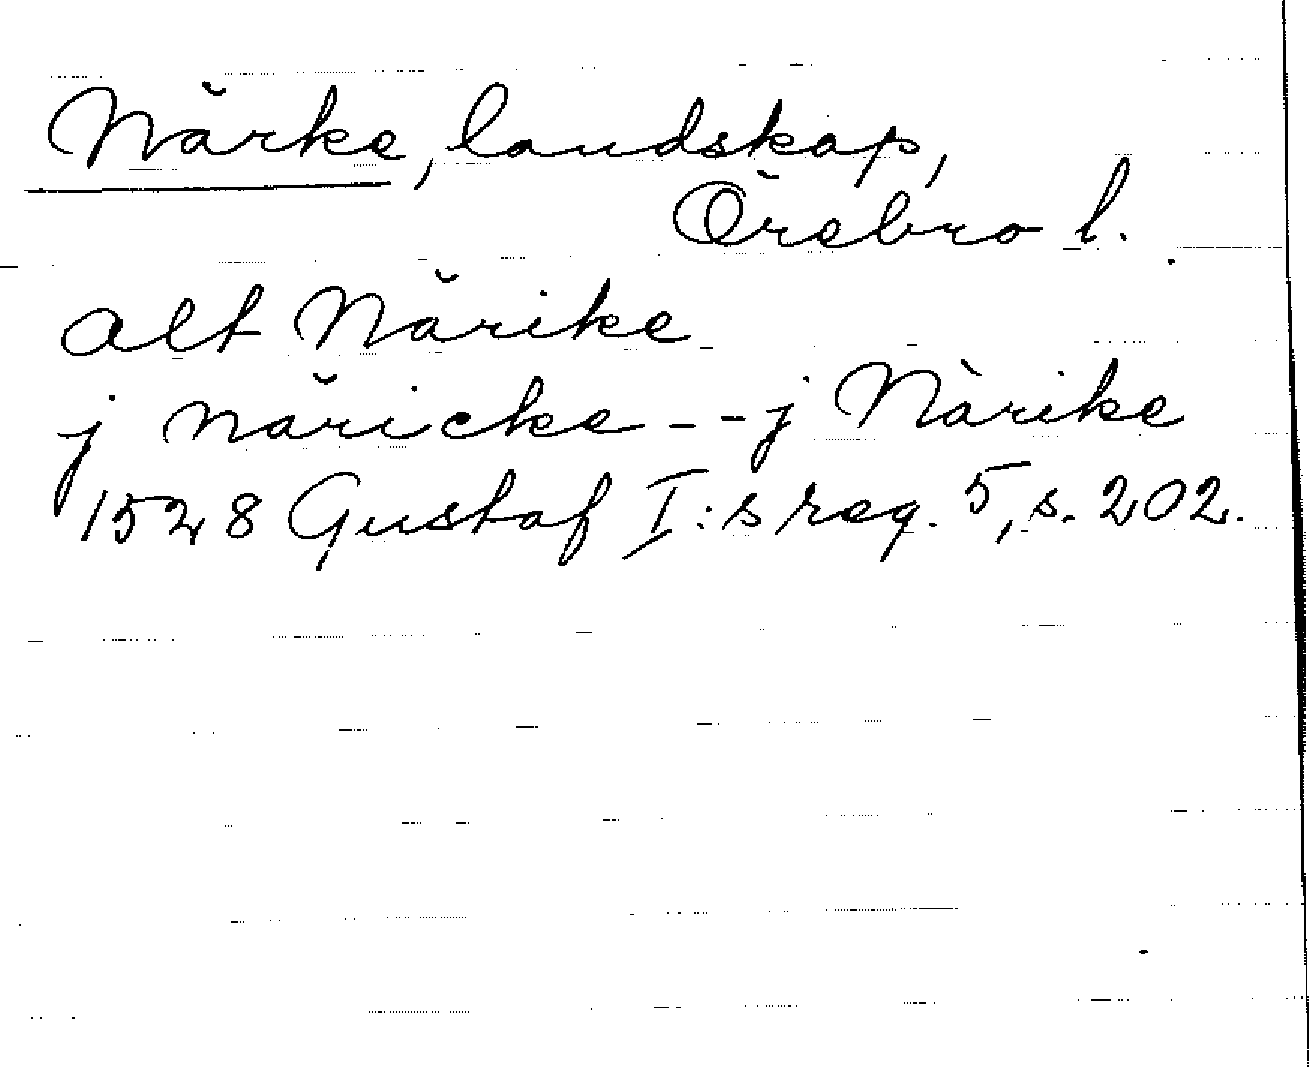 Närke, landskap,
Örebro l.
alt Närike
j näricke -- j Närike
1528 Gustaf I:s reg. 5, s. 202.